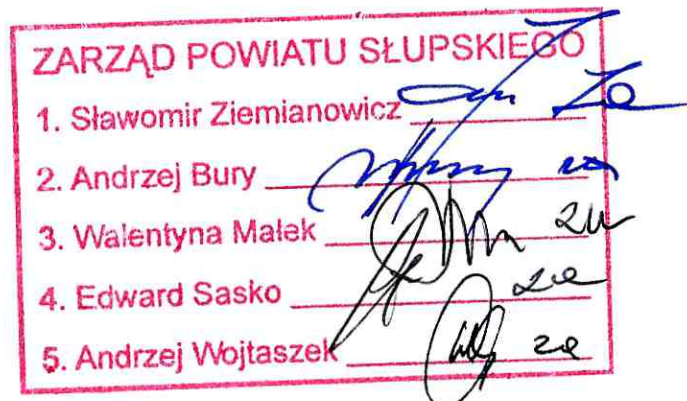 ZARZĄD POWIATU SŁUPSKIEGO
1. Sławomir Ziemianowicz
2. Andrzej Bury
3. Walentyna Małek
4. Edward Sasko
5. Andrzej Wojtaszek ze